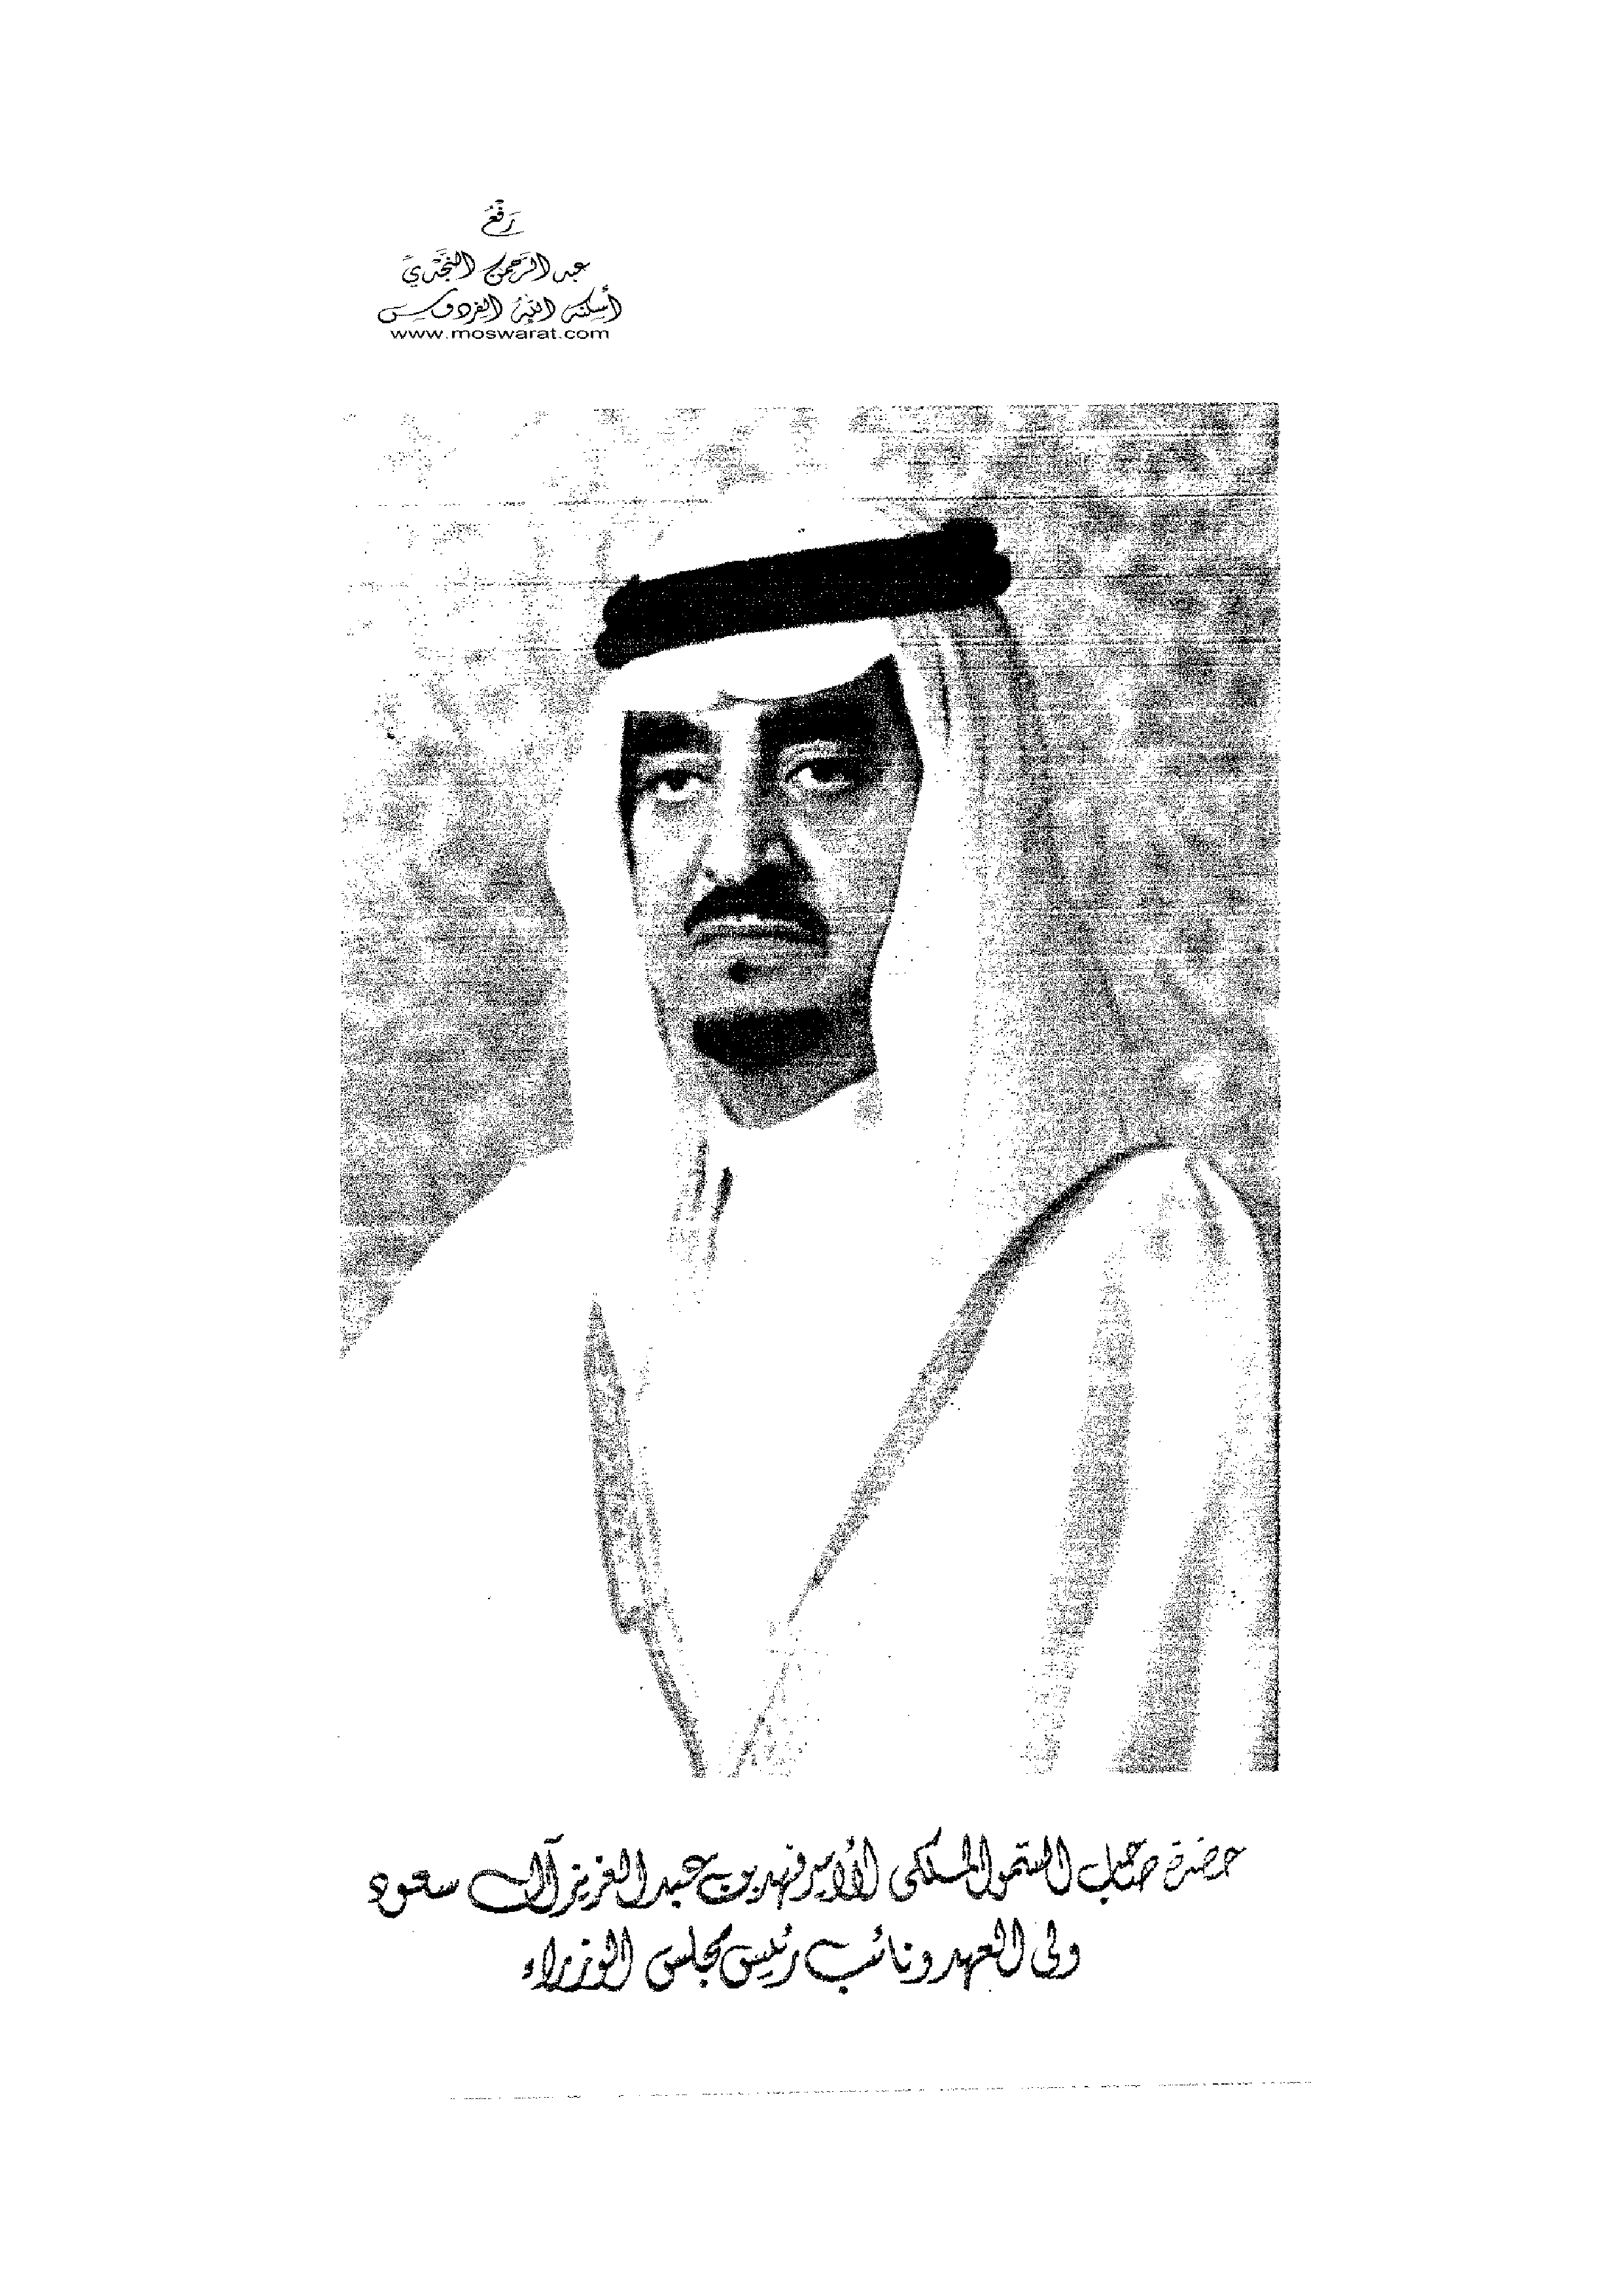 رَفْعُ
عبد الرَّحمن النَّجْديِّ
أسكنه اللّه الفردوس
www.moswarat.com
حضرة صاحب السمو الملكى الأمير فهد بن عبد العزيز آل سعود
ولى العهد ونائب رئيس مجلس الوزراء